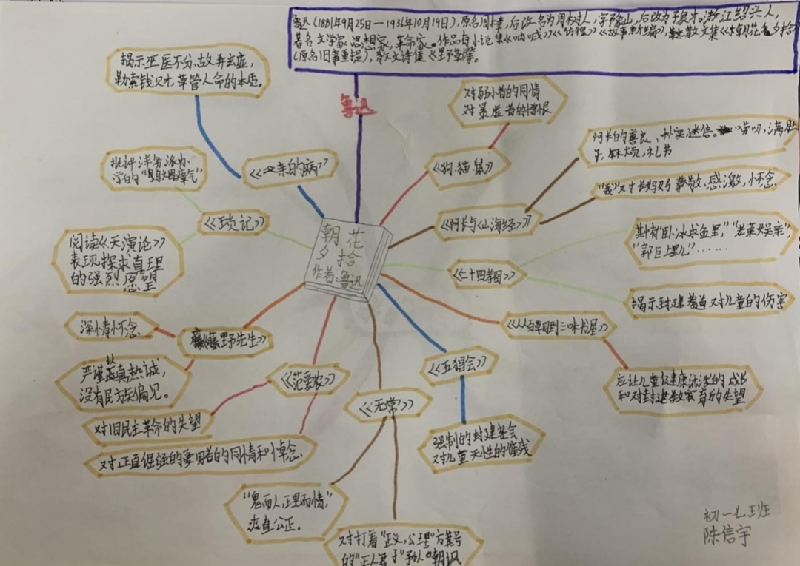 鲁迅(1881年9月25日—1936年10月19日),原名周樟寿,后改名为周树人,字豫山,后改为豫才,浙江绍兴人,
著名文学家、思想家、革命家。作品有小说集《呐喊》《彷徨》《故事新编》,散文集《朝花夕拾》
(原名旧事重提),散文诗集《野草》等。
鲁迅
朝花
夕拾
作者:鲁迅
《狗·猫·鼠》
对弱小者的同情
对暴虐者的憎恨
《阿长与山海经》
阿长的善良、朴实、迷信、
对长妈妈 感激,怀念
《二十四孝图》
"卧冰求鱼""老莱娱亲"
"郭巨埋儿"……
揭示封建孝道对儿童的伤害
《从百草园到三味书屋》
应让儿童健康活泼的成长
和对封建教育的失望
《五猖会》
强制的封建社会
对儿童天性的摧残
《无常》
"鬼而人,理而情"
公正。
对打着"正义,公理"为旗号
的"正人君子"予以嘲讽
《范爱农》
对旧民主革命的失望
对正直倔强的爱国者的同情和悼念
《藤野先生》
深情怀念。
严谨 正直热诚,
没有民族偏见。
《琐记》
批评洋务派办
学的"乌烟瘴气"
阅读《天演论》
表现探求真理
的强烈愿望
《父亲的病》
揭示巫医不分,故弄玄虚,
勒索钱财,草菅人命的本质。
初一七班
陈信宇